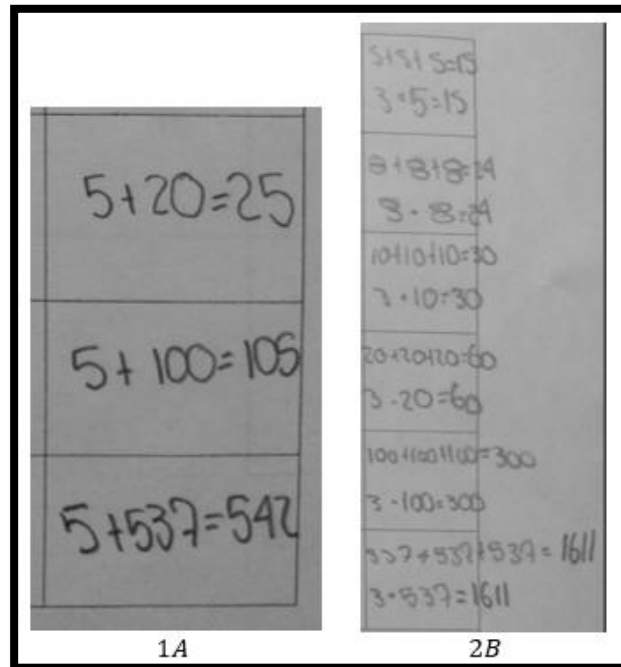 5+20=25
5+100=105
5+537=542
1A
5+5+5=15
3·5=15
8+8+8=24
3·8=24
10+10+10=30
3·10=30
20+20+20=60
3·20=60
100+100+100=300
3·100=300
537+537+537=1611
3·537=1611
2B